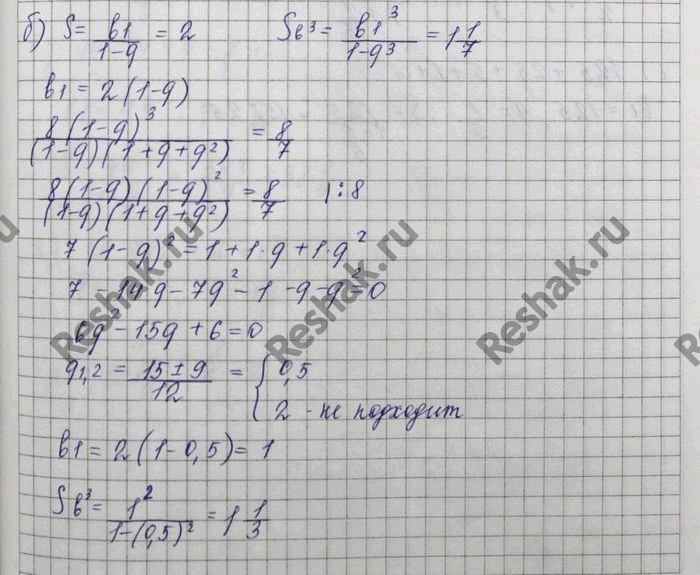 б) S = b1/(1-q) = 2 Sb³ = b1³/(1-q³) = 1 1/7
b1 = 2(1-q)
8(1-q)³/((1-q)(1+q+q²)) = 8/7
8(1-q)(1-q)²/((1-q)(1+q+q²)) = 8/7 | : 8
7(1-q)² = 1+1·q+1·q²
7 - 14q - 7q² - 1 - q - q² = 0
6q² - 15q + 6 = 0
q1,2 = (15±9)/12 = { 0,5
2 - не подходит
b1 = 2(1-0,5) = 1
Sb³ = 1²/(1-(0,5)²) = 1 1/3
Reshak.ru
Reshak.ru
Reshak.ru